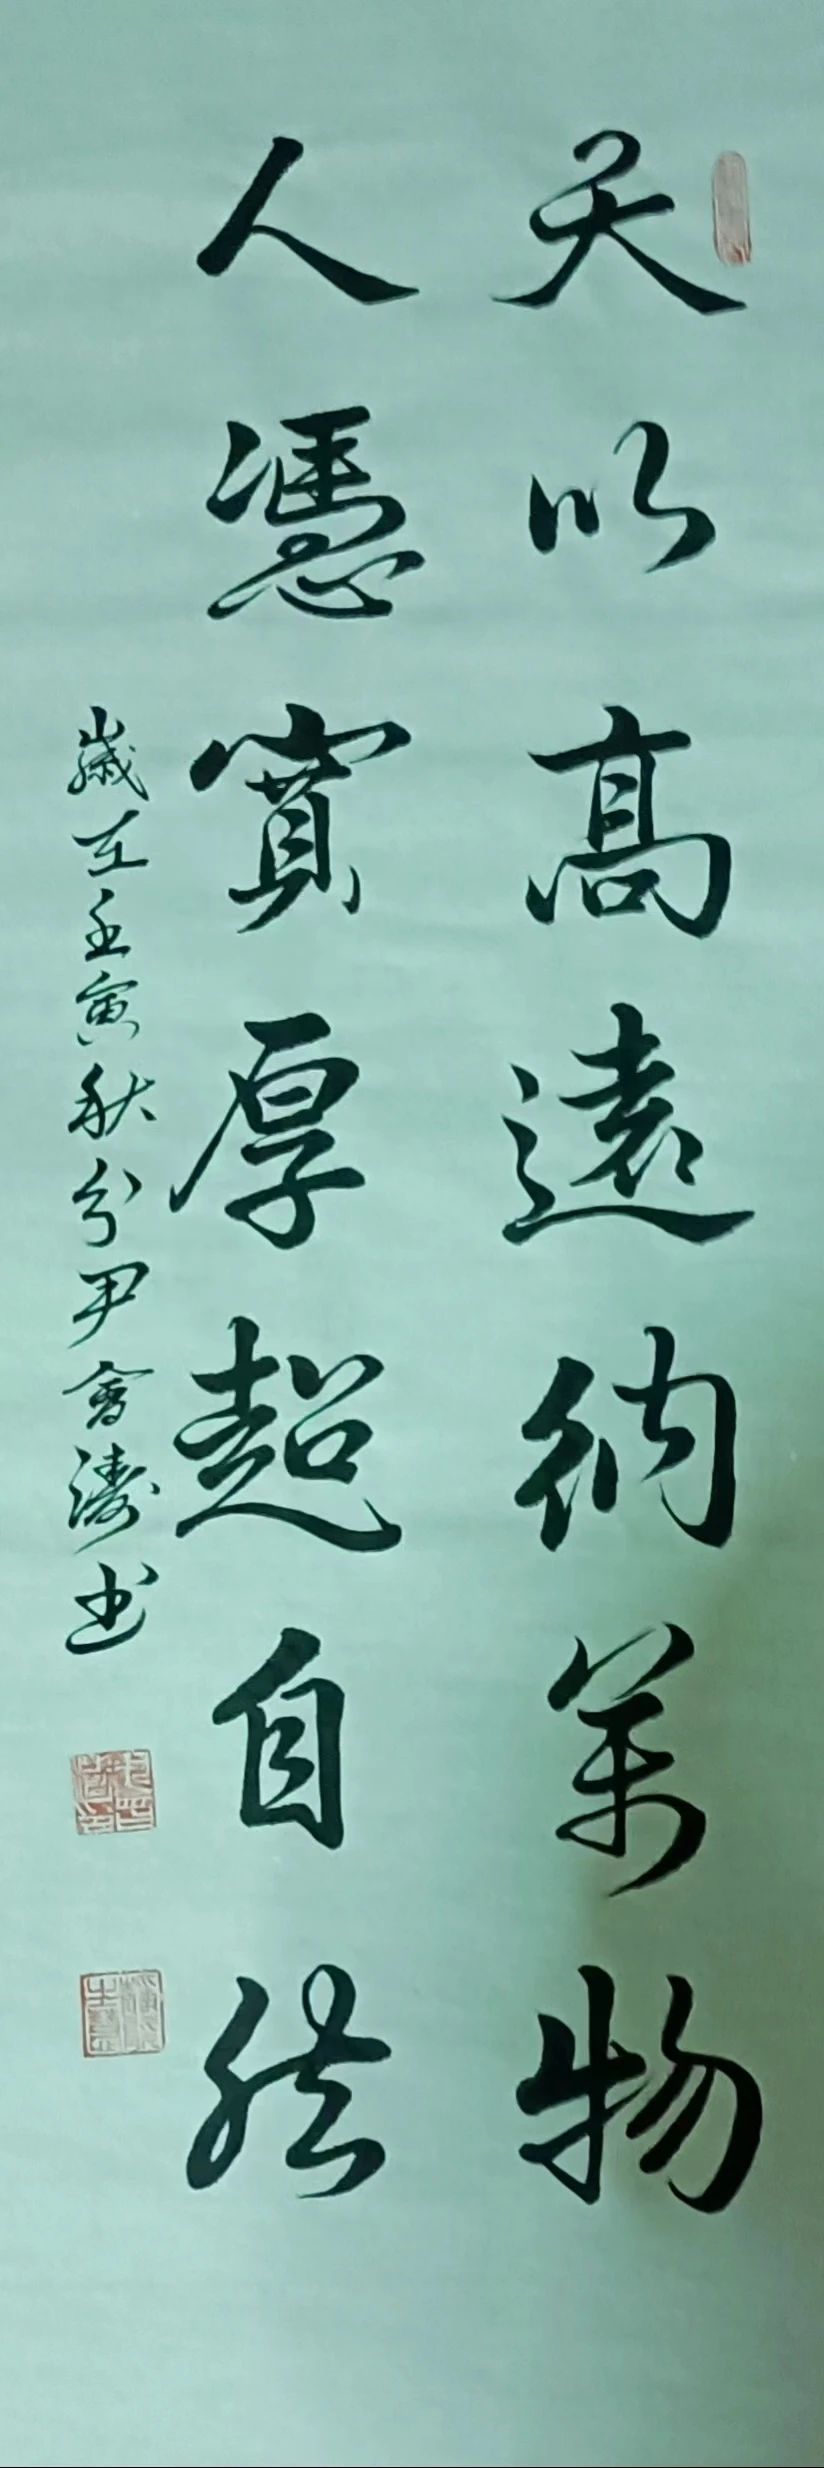 天以高遠納萬物
人憑實厚超自然
歲在壬寅秋分尹會濤书